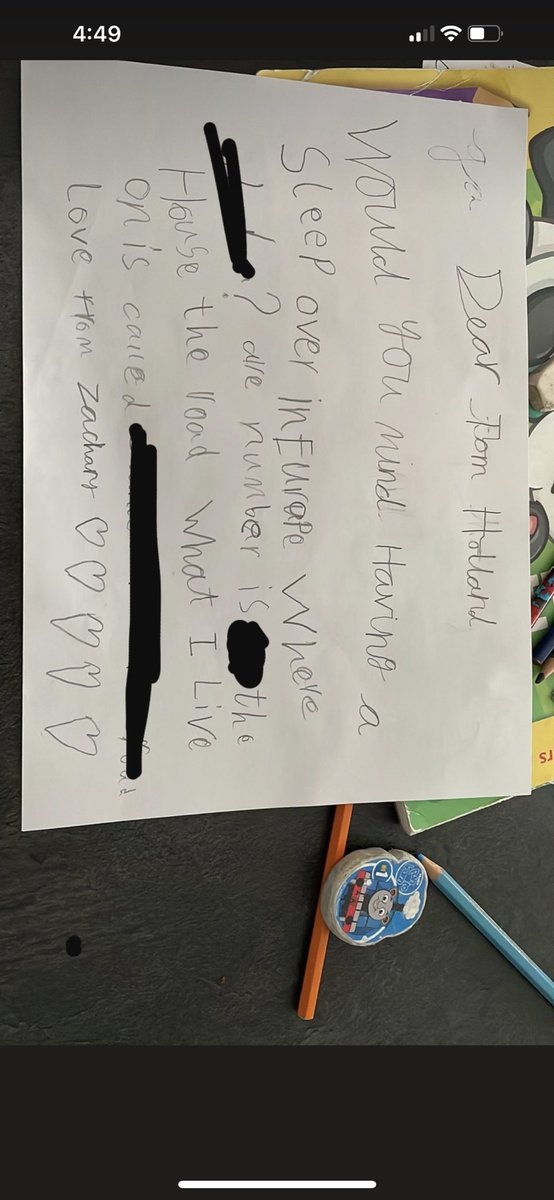 4:49
Dear Tom Holland
Would you mind Having a
Sleep over in Eurape Where
? are number is the
House the road What I Live
on is called
Love from zachary ♡ ♡ ♡ ♡ ♡
1